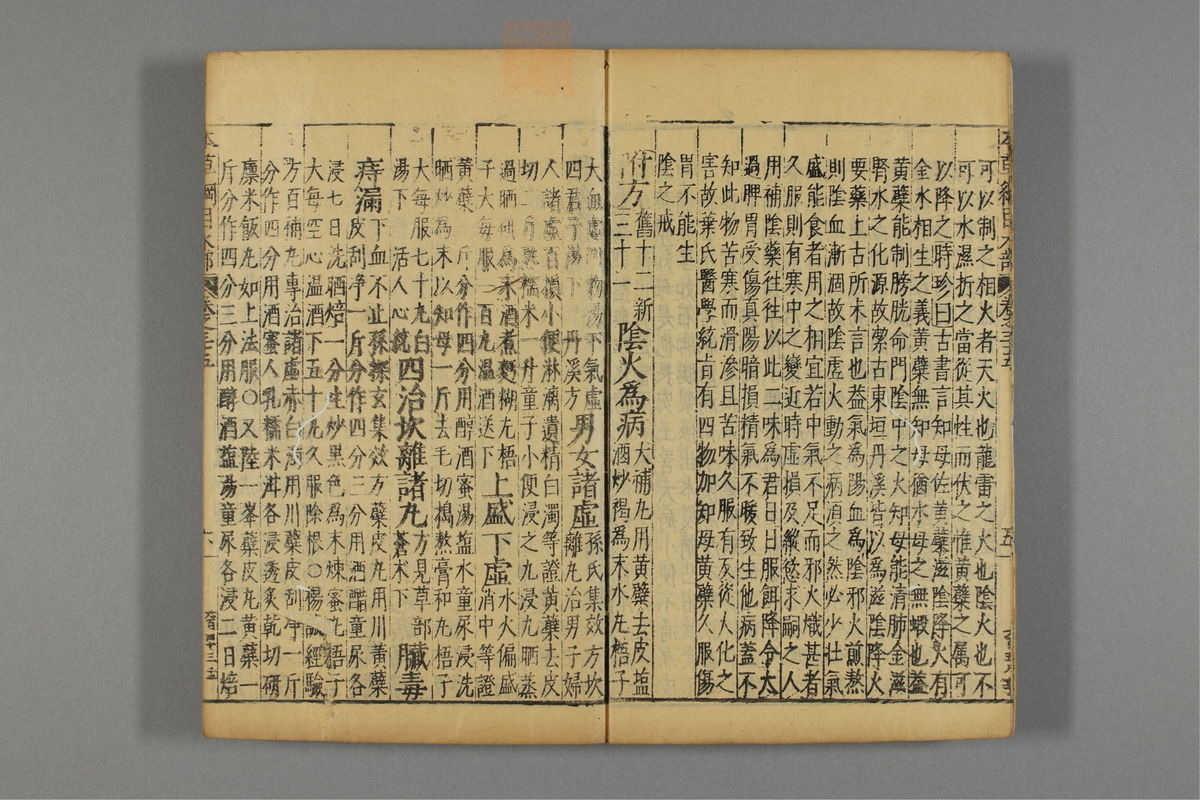 可以制之相火者天火也龍雷之火也陰火也不
可以水濕折之當從其性而伏之惟黃蘗之屬可
以降之時珍曰古書言知母佐黃蘗滋陰降火有
金水相生之義黃蘗無知母猶水母之無蝦也蓋
黃蘗能制膀胱命門陰中之火知母能清肺金滋
腎水之化源故潔古東垣丹溪皆以為滋陰降火
要藥上古所未言也蓋氣為陽血為陰邪火煎熬
則陰血漸涸故陰虛火動之病須之然必少壯氣
盛能食者用之相宜若中氣不足而邪火熾甚者
久服則有寒中之變近時虛損及縱慾求嗣之人
用補陰藥往往以此二味為君日日服餌降令太
過脾胃受傷真陽暗損精氣不暖致生他病蓋不
知此物苦寒而滑滲且苦味久服有反從火化之
害故葉氏醫學統旨有四物加知母黃蘗久服傷
胃不能生
陰之戒
附方舊十二新
三十一
陰火為病大補丸用黃蘗去皮鹽
酒炒褐為末水丸梧子
大血虛四物湯下氣虛
四君子湯下 丹溪方
男女諸虛孫氏集效方坎
離丸治男子婦
人諸虛百損小便淋漓遺精白濁等證黃蘗去皮
切二斤熟糯米一升童子小便浸之九浸九晒蒸
過晒研為末酒煮麪糊丸梧
子大每服一百丸溫酒送下
上盛下虛水火偏盛
消中等證
黃蘗一斤分作四分用醇酒蜜湯鹽水童尿浸洗
晒炒為末以知母一斤去毛切搗熬膏和丸梧子
大每服七十丸白
湯下 活人心統
四治坎離諸丸方見草部
蒼朮下
臟毒
痔漏下血不止孫探玄集效方蘗皮丸用川黃蘗
皮刮淨一斤分作四分三分用酒醋童尿各
浸七日洗晒焙一分生炒黑色為末煉蜜丸梧子
大每空心溫酒下五十丸久服除根○楊誠經驗
方百補丸專治諸虛赤白濁用川蘗皮刮淨一斤
分作四分用酒蜜人乳糯米泔各浸透炙乾切研
廩米飯丸如上法服○又陸一峯蘗皮丸黃蘗一
斤分作四分三分用醇酒鹽湯童尿各浸二日焙